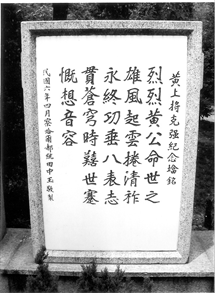 黄上将克强纪念墙铭
烈烈黄公命世之
雄风起云捲清祚
永终功垂八表志
贯苍穹时艰世塞
慨想音容
民国六年四月察哈尔都统田中玉敬制